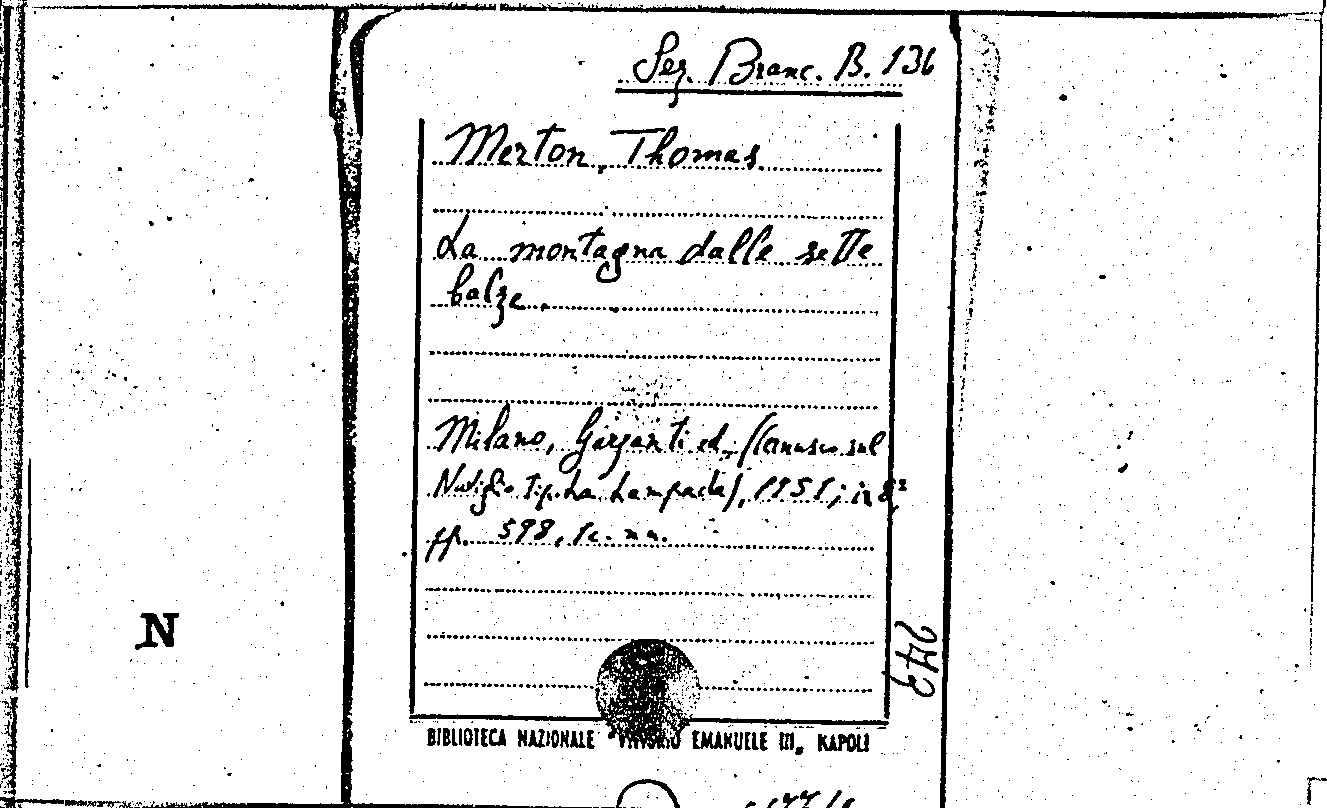 Sez. Branc. B. 136
Merton, Thomas.
La montagna dalle sette
balze.
Milano, Garzanti ed. (Cernusco sul
Naviglio Tip. La Lampada), 1951; in 8°
pp. 598, 1 c. nn.
N
2443
BIBLIOTECA NAZIONALE "VITTORIO EMANUELE III„ NAPOLI